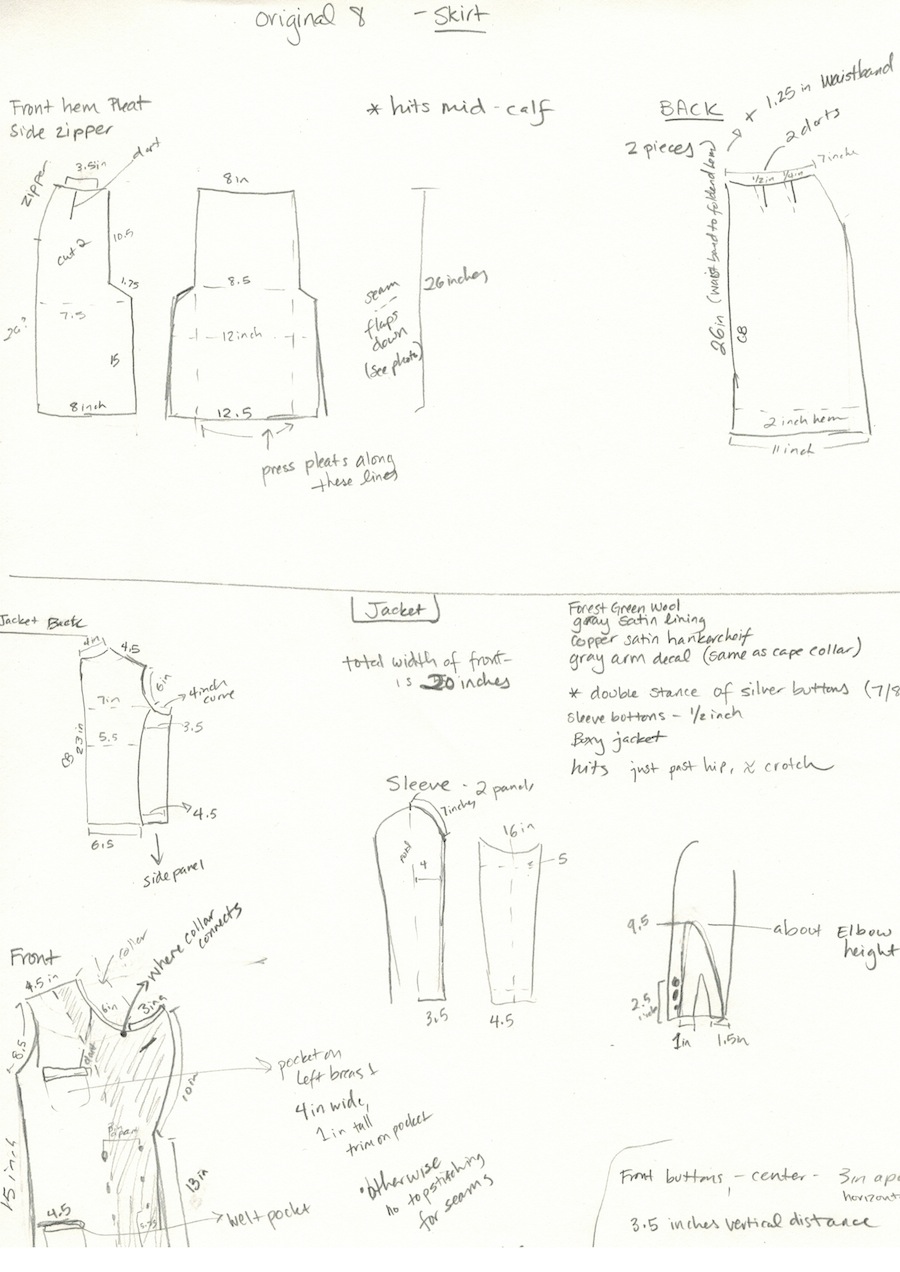 original 8 - Skirt
Front hem Pleat
Side zipper
* hits mid-calf
BACK
2 pieces
* 1.25 in Waistband
2 darts
zipper
3.5in
dart
cut 2
10.5
1.75
7.5
15
8 inch
8in
8.5
12inch
12.5
press pleats along
these lines
seam
flaps
down
(see photo)
26 inches
26in (waistband to folded hem)
CB
7 inch
1/2 in
2 inch hem
11 inch
Jacket Back
4in
4.5
6in
4 inch
curve
7in
3.5
5.5
CB 23 in
4.5
6.5
side panel
Jacket
total width of front-
is 20 inches
Forest Green Wool
gray satin lining
copper satin hankercheif
gray arm decal (same as cape collar)
* double stance of silver buttons (7/8
sleeve bottons - 1/2 inch
Boxy jacket
hits just past hip, crotch
Sleeve - 2 panels
7inches
4
3.5
16in
5
4.5
9.5
about Elbow
height
2.5
1in
1.5in
Front
4.5 in
collar
where collar
connects
6in
3in
8.5
dart
10in
15 inch
13in
4.5
5.75
pocket on
left breast
4in wide,
1in tall
trim on pocket
*otherwise
no topstitching
for seams
welt pocket
Front buttons - center - 3in apa
horizont
3.5 inches vertical distance